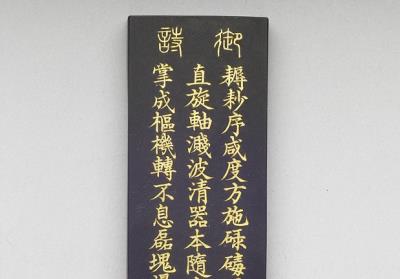 御詩
耨耖序咸度方施碌碡
直旋軸濺波清器本隨
掌成樞機轉不息磊塊